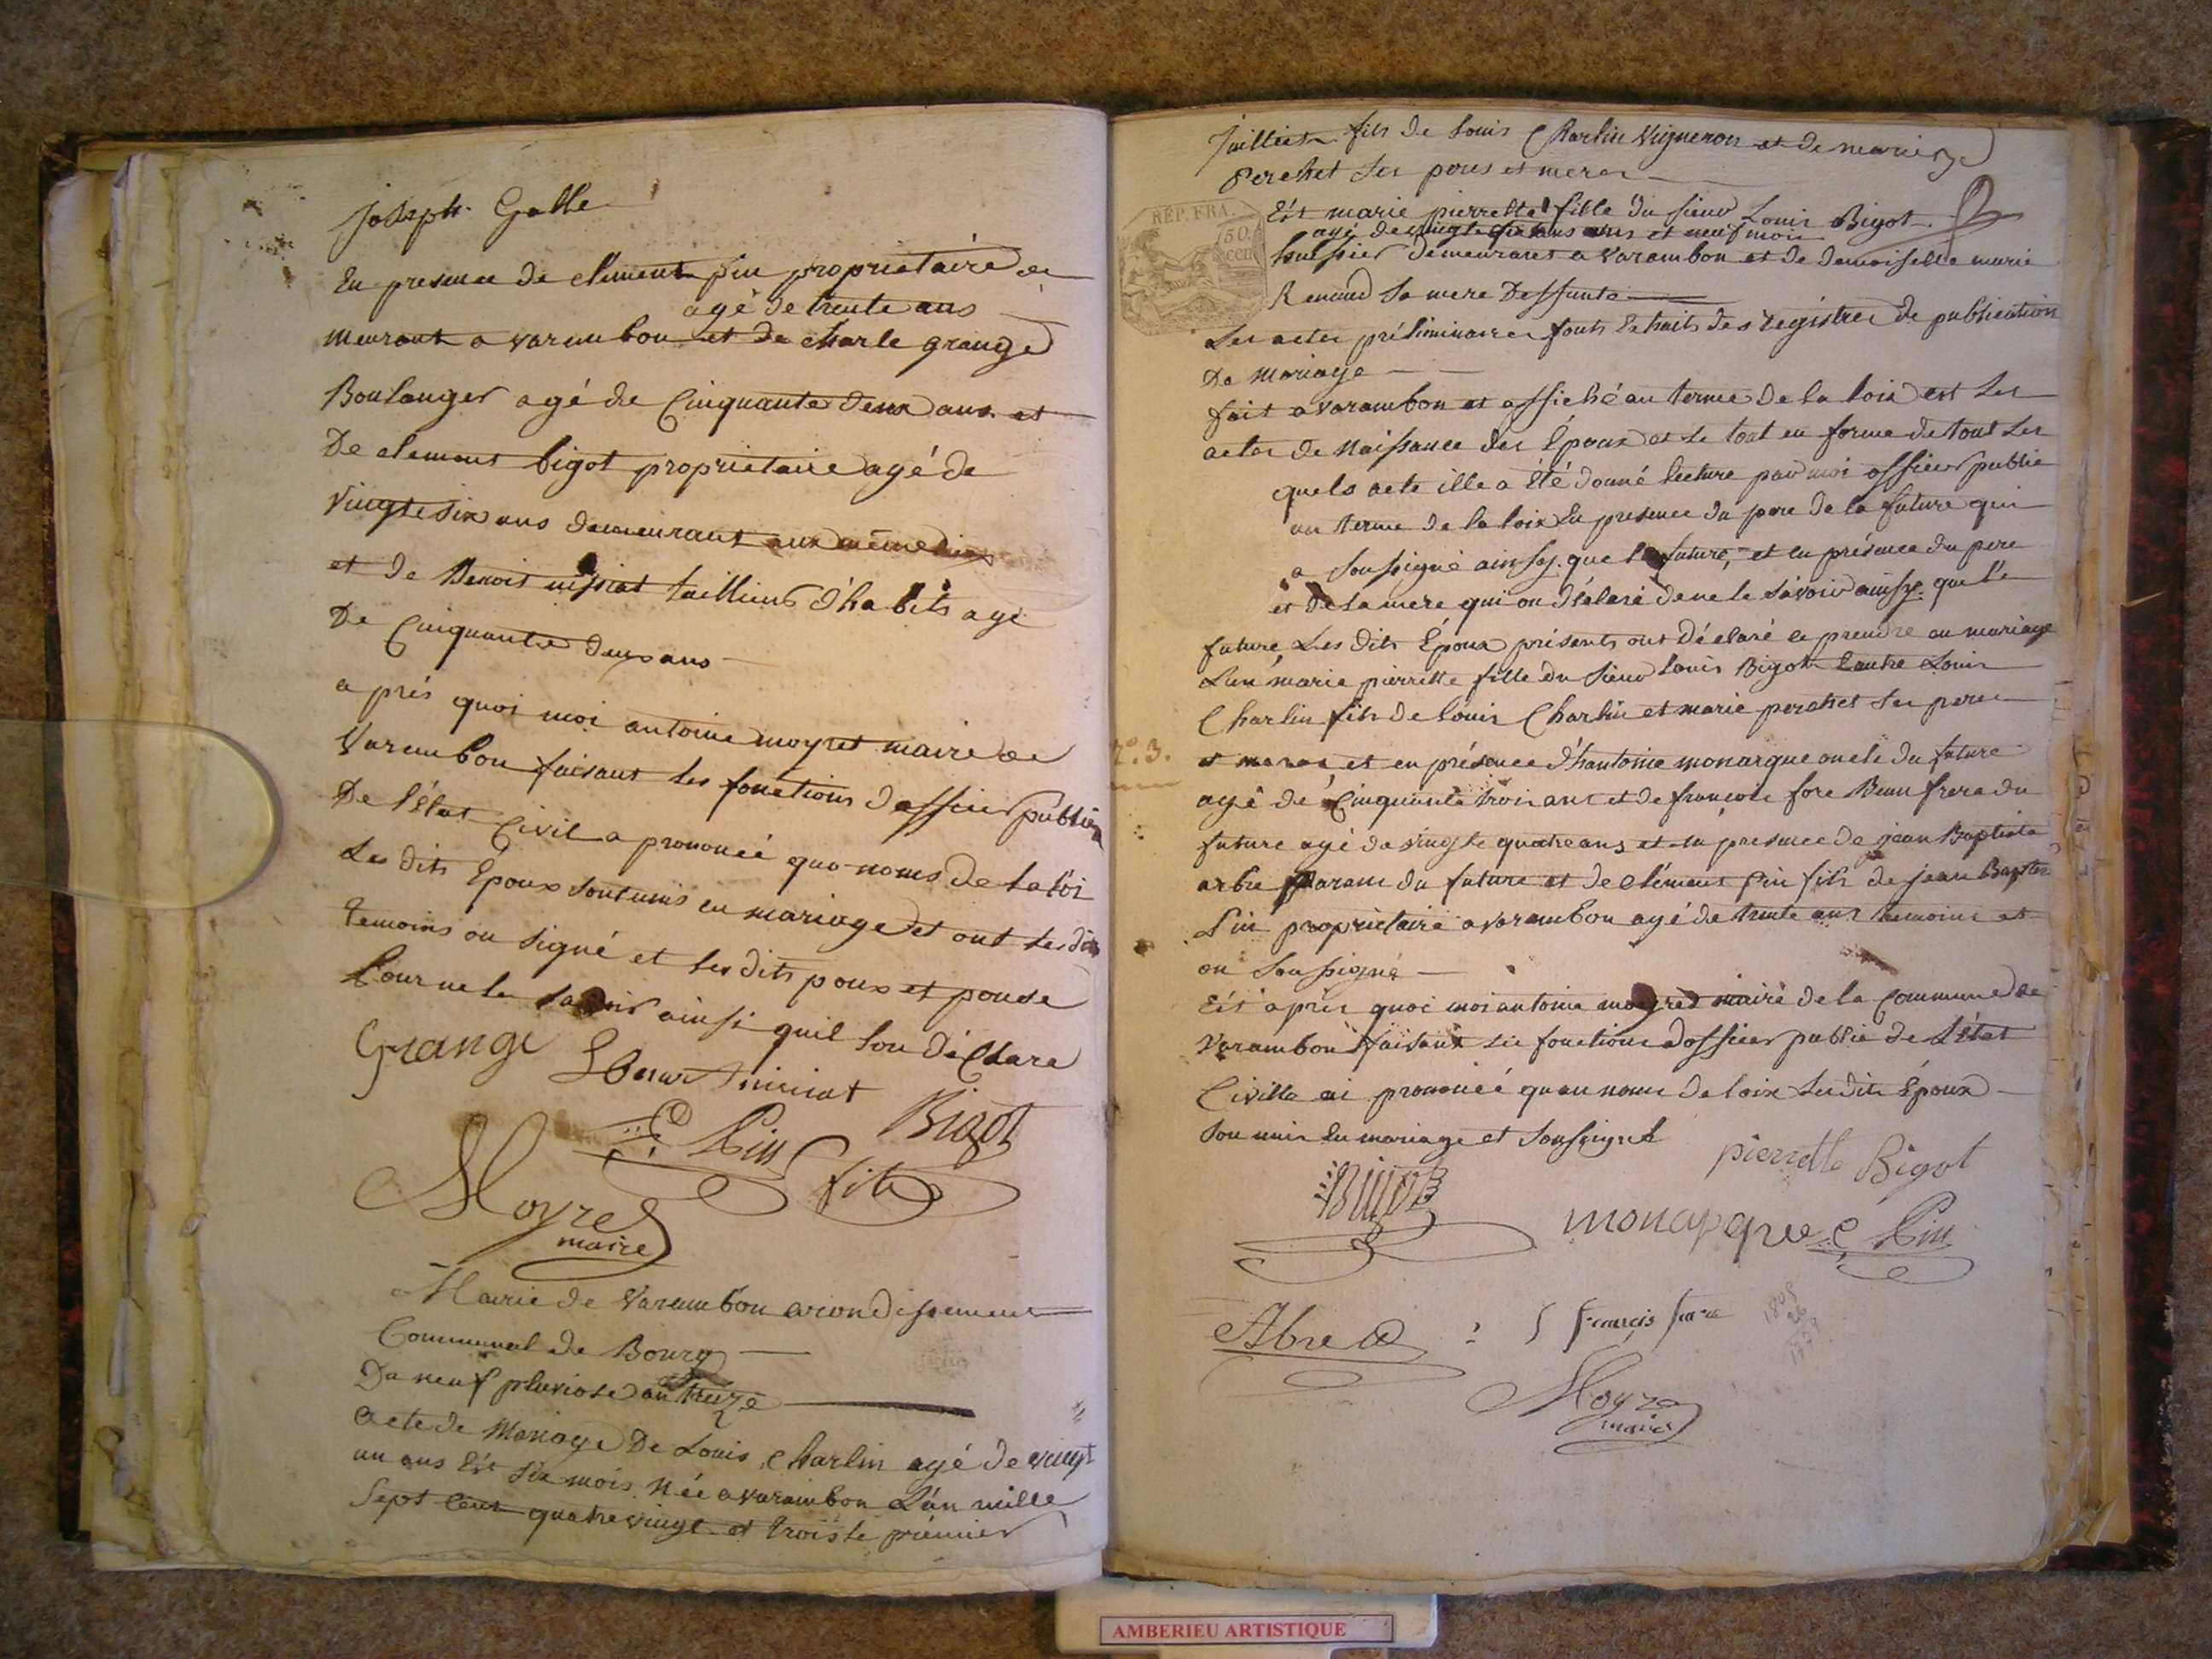 Joseph Galle
En presence de clement pin proprietaire de
agé de trente ans
meurant a varambon et de charle grange
Boulanger agé de Cinquante deux ans et
De clement bigot proprietaire agé de
vingte six ans demeurant aux même lieu
et de Benoit nissiat tailleur d'habits agé
De Cinquante deux ans
a prés quoi moi antoine moyret maire de
Varambon faisant les fonctions dofficier public
De l'état Civil a prononcé quo noms de la loi
Les dits Epoux sont unis en mariage et ont les dits
temoins on signé et les dits poux et pouse
Pour ne le savoir ainsi quil lon déClare
Grange niciat
C Pin Bigot
fils
Moyret
maire
Mairie de Varambon arondissement
Communal de Bourg
Du neuf pluviose an treize
acte de Mariage De Louis Charlin agé de vingt
un ans Et six mois née a varambon L'an mille
Sept Cent quatre vingt et trois le premier
Juillet fils de Louis Charlin Vigneron et de marie
Perchet Ses peres et meres
REP. FRA.
50
cen
Et marie pierrette fille du sieur Louis Bigot
agé de vingt ans et neuf mois
huissier demeurant a varambon et de demoiselle marie
Renaud sa mere Deffunte
Les actes préliminaires sont Extraits des régistre de publication
De mariage
fait a varambon et affiché au terme de la loix est Les
actes de Naissance des Epoux et le tout en forme de tout Les
quels acte ille a été donné lecture par moi officier public
au terme de la loix En presence du pere de la future qui
a soussigné ainsy que la future, et en présence du pere
et de la mere qui on déclaré de ne le savoir ainsy que le
future Les dits Epoux présents ont déclaré se prendre en mariage
L'un marie pierrette fille du sieur Louis Bigot Lautre Louis
Charlin fils de Louis Charlin et marie perchet ses pere
n.° 3.
et meres et en présence d'hantoine monarque oncle du future
agé de Cinquante trois ans et de francois fore Beau frere du
future agé de vingte quatre ans et en presence de jean Baptiste
arbre parant du future et de clément pin fils de jean Baptiste
Pin proprietaire a varambon agé de trente ans temoins et
on soussigné
Et après quoi moi antoine moyret maire de la Commune de
Varambon faisant les fonctions dofficier public de L'état
Civille ai prononcé quau nome de loix Les dits Epoux
son unis En mariage et soussigné
pierrette Bigot
Bigot
monarque C Pin
Abre
francois
1805
Moyret
maire
AMBERIEU ARTISTIQUE